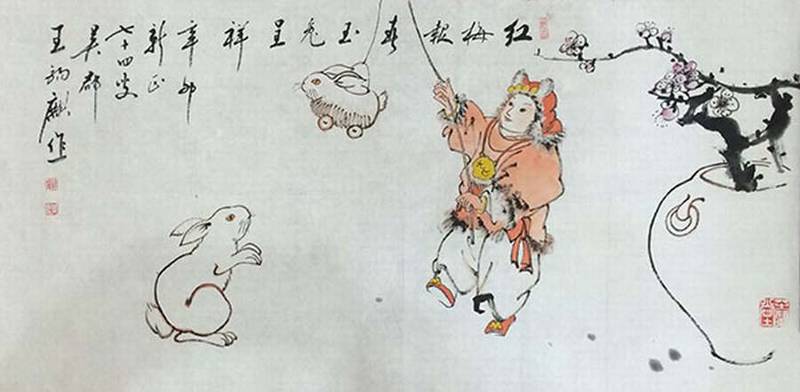 红梅報春玉兔呈祥
辛卯
新正
七十四叟
吴郡
王錫麒作